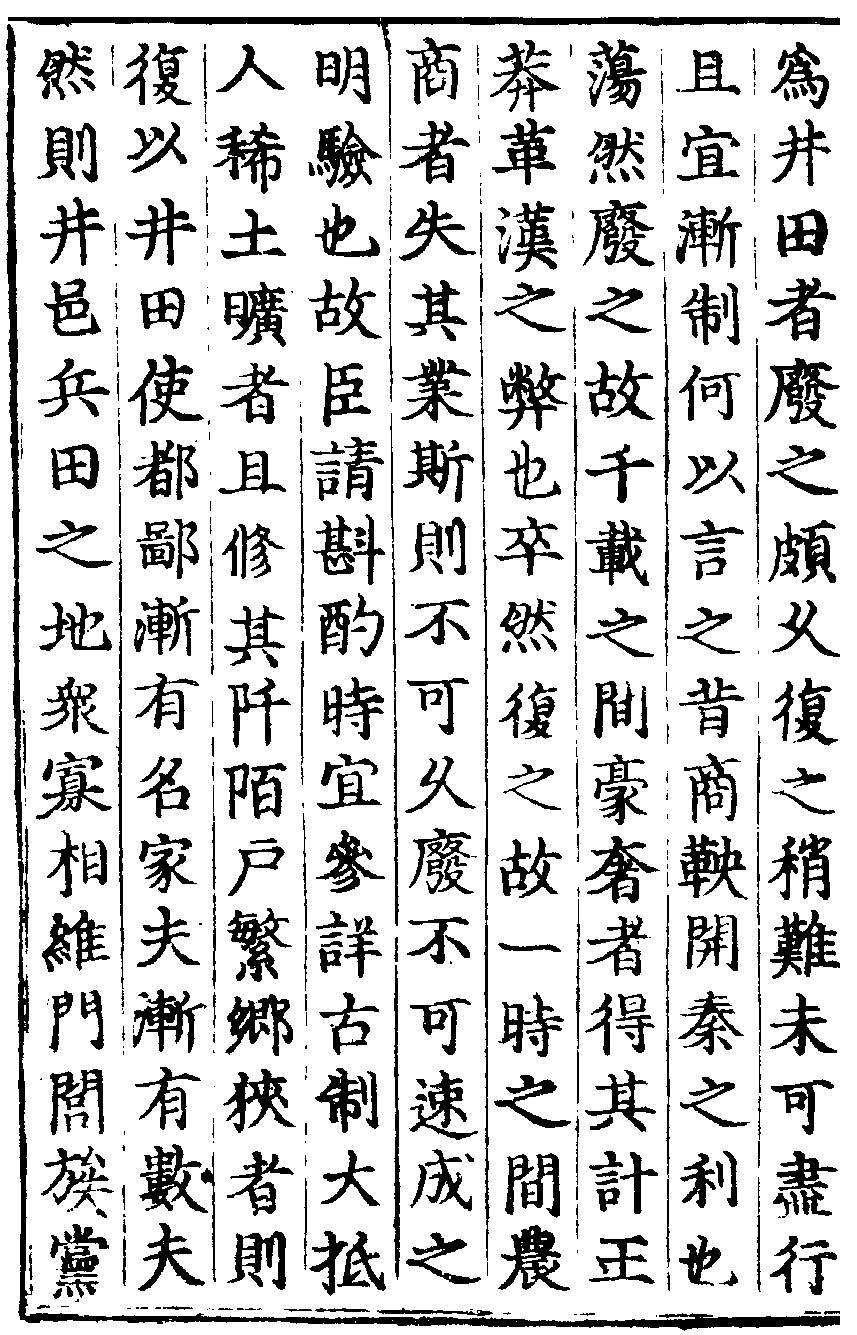 爲井田者廢之頗乆復之稍難未可盡行
且宜漸制何以言之昔商鞅開秦之利也
蕩然廢之故千載之間豪奢者得其計王
莽革漢之弊也卒然復之故一時之間農
商者失其業斯則不可乆廢不可速成之
明驗也故臣請斟酌時宜參詳古制大抵
人稀土曠者且修其阡陌戶繁鄉狹者則
復以井田使都鄙漸有名家夫漸有數夫
然則井邑兵田之地衆寡相維門閭族黨